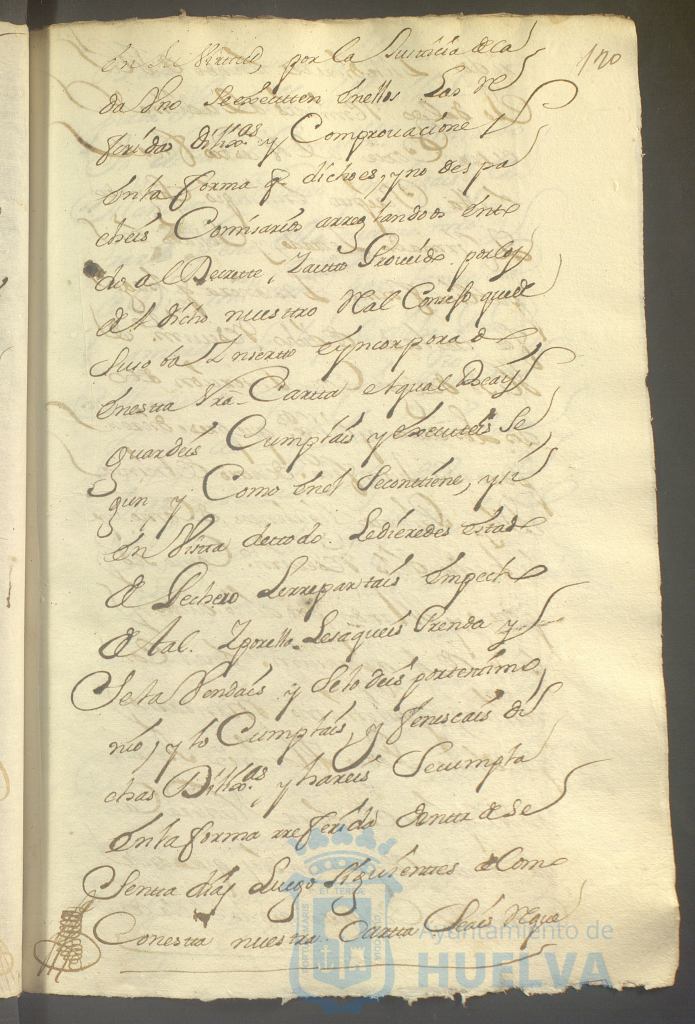 120
En su Virtud, por la Justicia de ca
da Uno se executen En ellos Las Re
feridas dilixas. y Comprovaciones
En la forma q. dicho es, y no despa
cheis Comisarios arreglandoos Ente
do al Decrete, y auto Proveido por los
del dicho nuestro Real Consejo que de
suso ba Inserto e Yncorporado
En esta Nra. Carta el qual Veais
guardeis Cumplais y executeis Se
gun y Como En el Se contiene, y si
En Vista de todo Le dieredes Estado
de Pechero Le rrepartais Em peche
de tal. Y por ello Le saqueis Prenda y
Se la Vendais y Se lo deis por testimo
nio, y lo Cumplais, y fenescais di
chas Dilixas. y hareis Se cumpla
En la forma rreferida dentro de Se
senta dias Luego Siguientes de Como
Con esta nuestra Carta Seais Reque
Ayuntamiento de
HUELVA